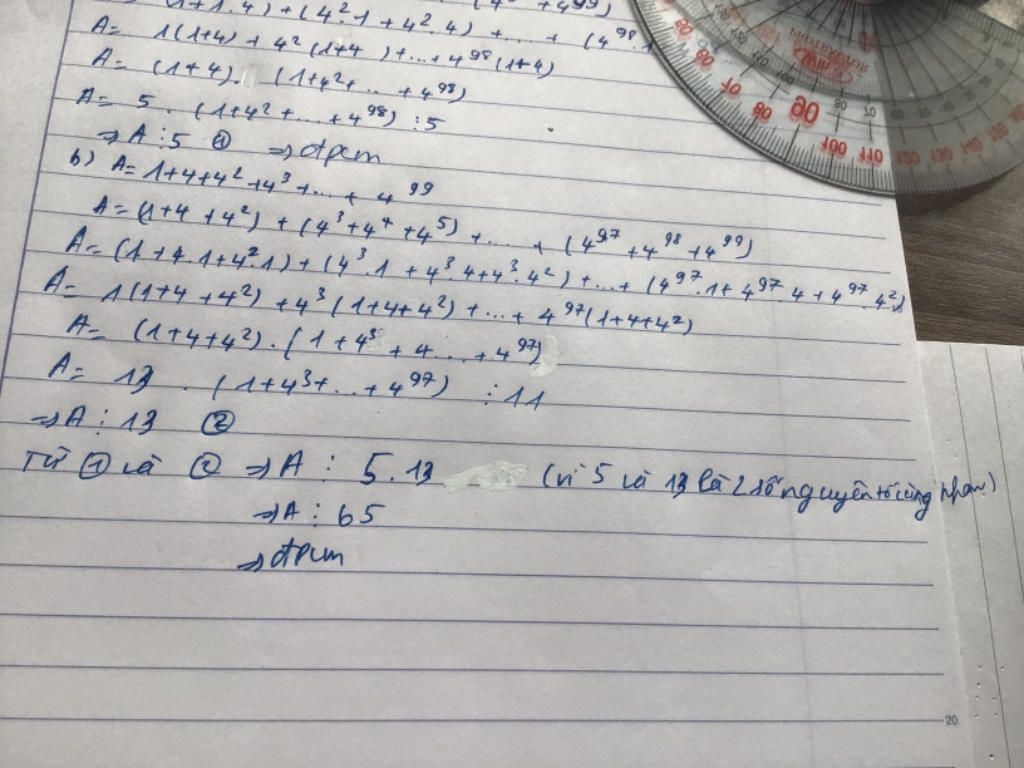 (1+1.4)+(4².1+4².4)+...+(4⁹⁸.1
(4 +4⁹⁹)
A= 1(1+4)+4²(1+4)+...+4⁹⁸(1+4)
A= (1+4). (1+4²+...+4⁹⁸)
A= 5 . (1+4²+...+4⁹⁸) ⋮5
⇒A⋮5 ① ⇒đpcm
b) A=1+4+4²+4³+...+4⁹⁹
A=(1+4+4²)+(4³+4⁴+4⁵)+...+(4⁹⁷+4⁹⁸+4⁹⁹)
A=(1+4.1+4².1)+(4³.1+4³.4+4³.4²)+...+(4⁹⁷.1+4⁹⁷.4+4⁹⁷.4²)
A= 1(1+4+4²)+4³(1+4+4²)+...+4⁹⁷(1+4+4²)
A= (1+4+4²).(1+4³+4...+4⁹⁷)
A= 13 . (1+4³+...+4⁹⁷) ⋮11
⇒A⋮13 ②
Từ ① và ② ⇒A⋮5.13 (vì 5 và 13 là 2 số nguyên tố cùng nhau)
⇒A⋮65
⇒đpcm
90
80
70
80
100
110
120
130
20